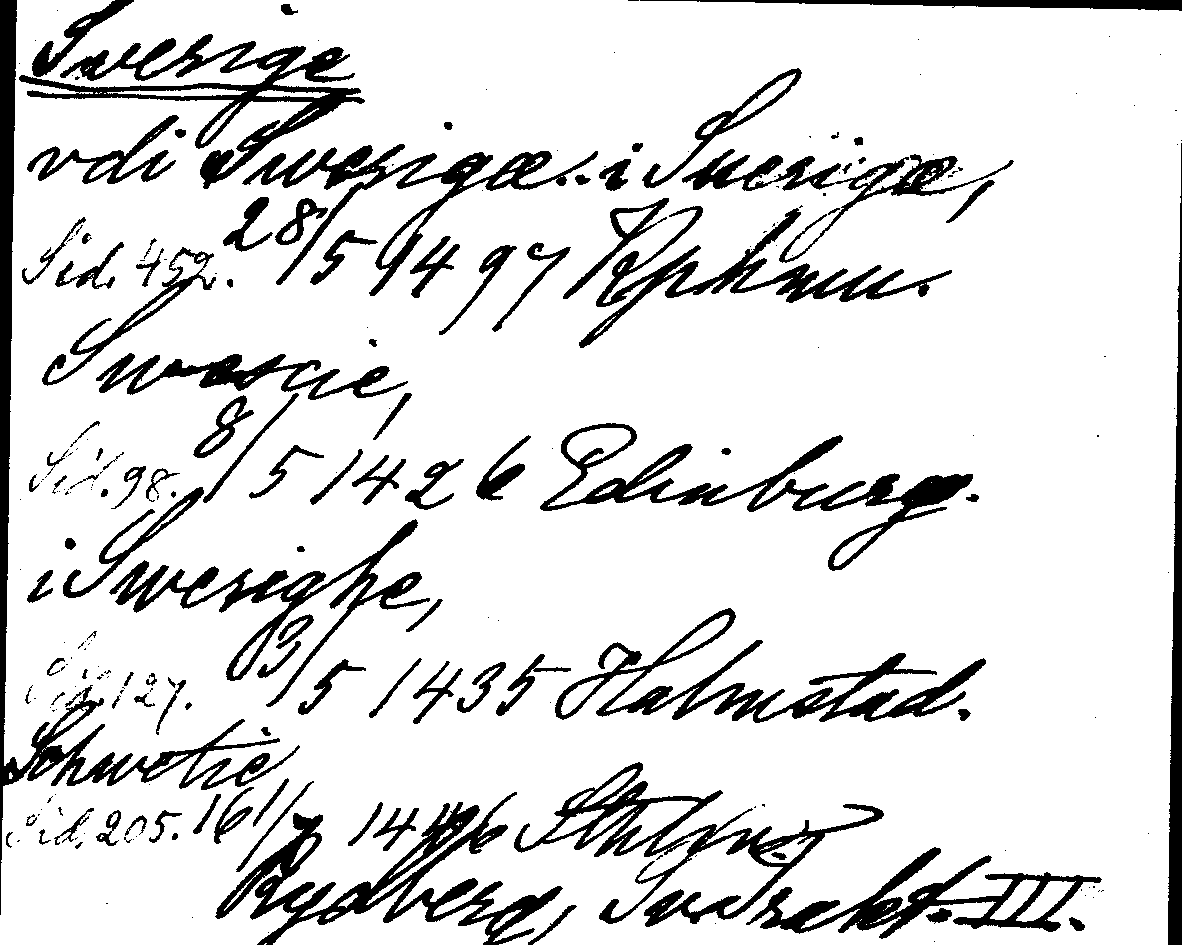 Sverige
vdi Swerigæ. i Sueri̇gæ,
Sid. 452. 28/5 1497 Kphmn.
Swescie,
Sid. 98. 8/5 1426 Edinburg.
i Swerighe,
Sid. 127. 3/5 1435 Halmstad.
Schwetie
Sid. 205. 16/7 1446 Sthlm.
Rydberg, Sv. Trakt. III.